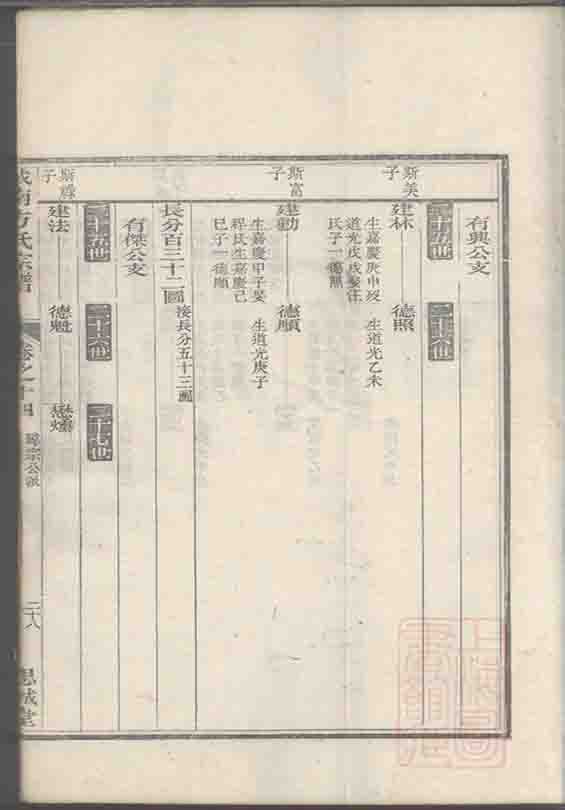 有興公支
二十五世
二十六世
斯美子
建林
德照
生嘉慶庚申歿
道光戊戌娶汪
氏子一德照
生道光乙未
斯富子
建勳
德順
生嘉慶甲子娶
程氏生嘉慶己
巳子一德順
生道光庚子
長分百三十二圖
接長分五十三圖
有傑公支
二十五世
二十六世
二十七世
子
建法
德魁
懋
方氏宗譜
卷之十四
宗公派
二八
思誠堂